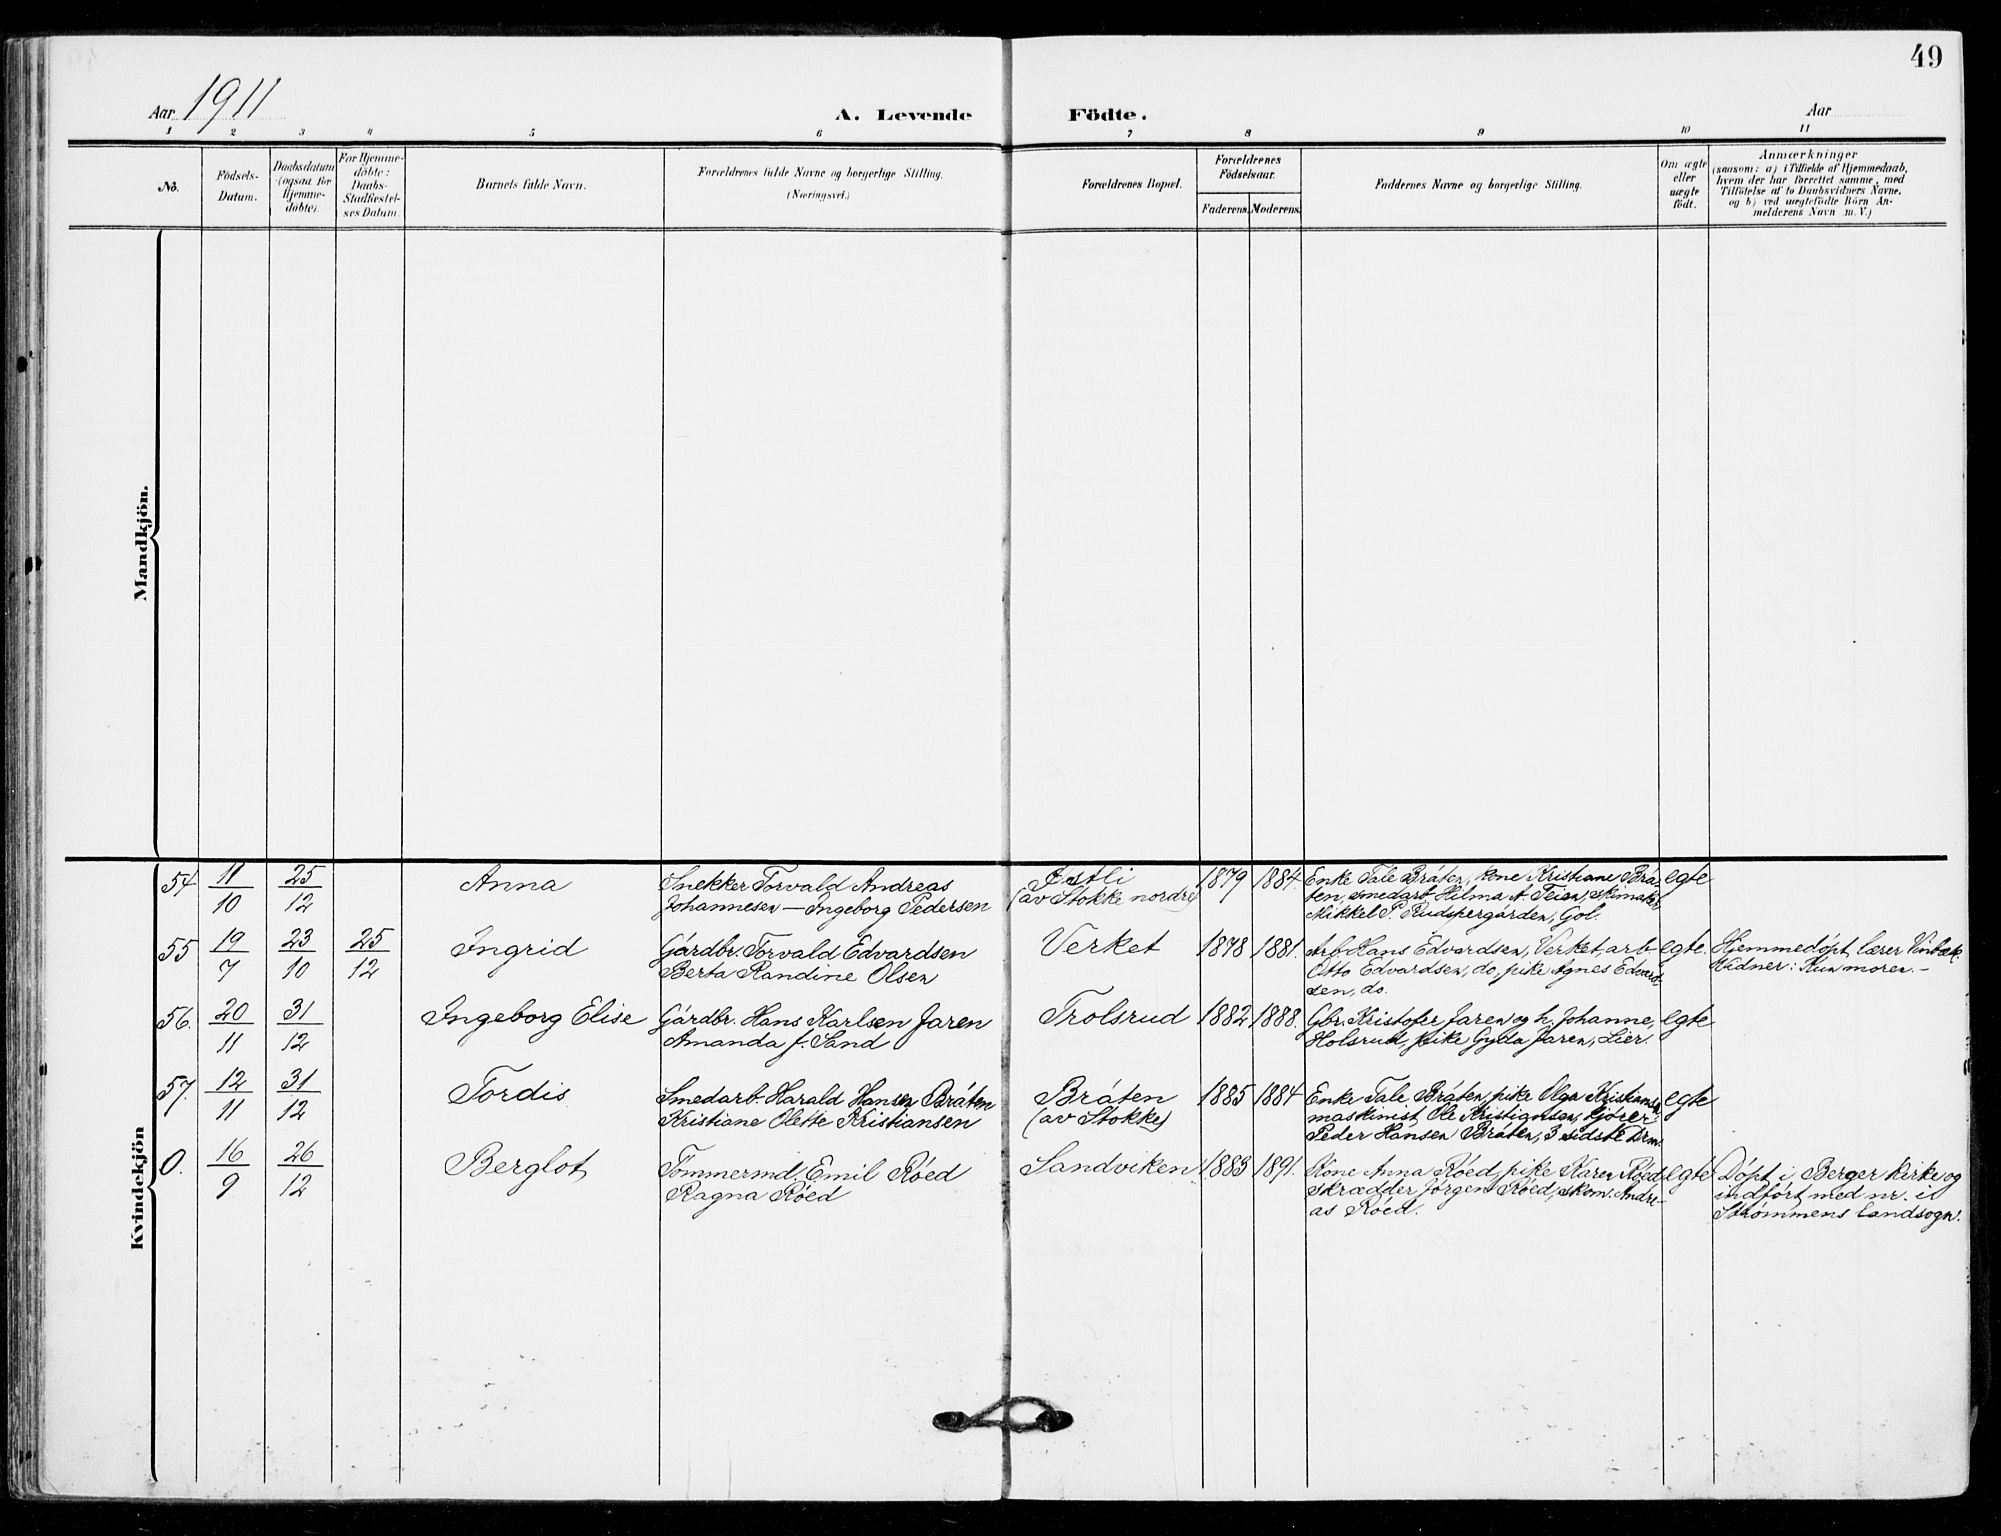 49
Aar 1911
A. Levende Födte.
Aar
1 2 3 4 5 6 7 8 9 10 11
No.
Födsels-
Datum.
Daabsdatum
(ogsaa for
Hjemme-
döbte).
For Hjemme-
döbte:
Daabs-
Stadfæstel-
ses Datum.
Barnets fulde Navn.
Forældrenes fulde Navne og borgerlige Stilling.
(Næringsvei.)
Forældrenes Bopæl.
Forældrenes
Födselsaar.
Faderens. Moderens.
Faddernes Navne og borgerlige Stilling.
Om ægte
eller
uægte
födt.
Anmærkninger
(saasom: a) i Tilfælde af Hjemmedaab,
hvem der har forrettet samme, med
Tilföielse af to Daabsvidners Navne,
og b) ved uægtefödte Börn An-
melderens Navn m. V.)
Mandkjön.
Kvindekjön
54 11/10 25/12 Anna
Snekker Torvald Andreas
Johannesen — Ingeborg Pedersen
Østli
(av Stokke nordre)
1879 1884.
Enke Tale Bråten, kone Kristiane Brå-
ten, smedarb. Hilma A. Teien, skomaker
Mikkel P. Rudspergården, Gol.
egte
55 19/7 23/10 25/12 Ingrid
Gårdbr. Torvald Edvardsen
Berta Randine Olsen
Verket
1878 1881.
Arb. Hans Edvardsen, Verket, arb.
Otto Edvardsen, do, pike Agnes Edvard-
sen, do.
egte.
Hjemmedøpt, lærer Vinbæk.
Vidner: Kun moren.-
56. 20/11 31/12 Ingeborg Elise
Gårdbr. Hans Karlsen Jaren
Amanda J. Sand
Trolsrud
1882 1888.
Gbr. Kristofer Jaren og h. Johanne,
Holsrud, pike Gyda Jaren, Lier.
egte
57. 12/11 31/12 Tordis
Smedarb. Harald Hansen Bråten
Kristiane Olette Kristiansen
Bråten
(av Stokke)
1885 1884
Enke Tale Bråten, pike Olga Kristiansen
maskinist Ole Kristiansen, kjører
Peder Hansen Bråten, 3 sidste Drm.
egte
0. 16/9 26/12 Berglot
Tømmermd. Emil Røed
Ragna Røed
Sandviken
1883 1891.
Kone Anna Røed, pike Karen Røed
skrædder Jørgen Røed, skom. Andre-
as Røed.
egte
Døpt i Berger kirke og
indført med nr. i
Strømmens landsogn.